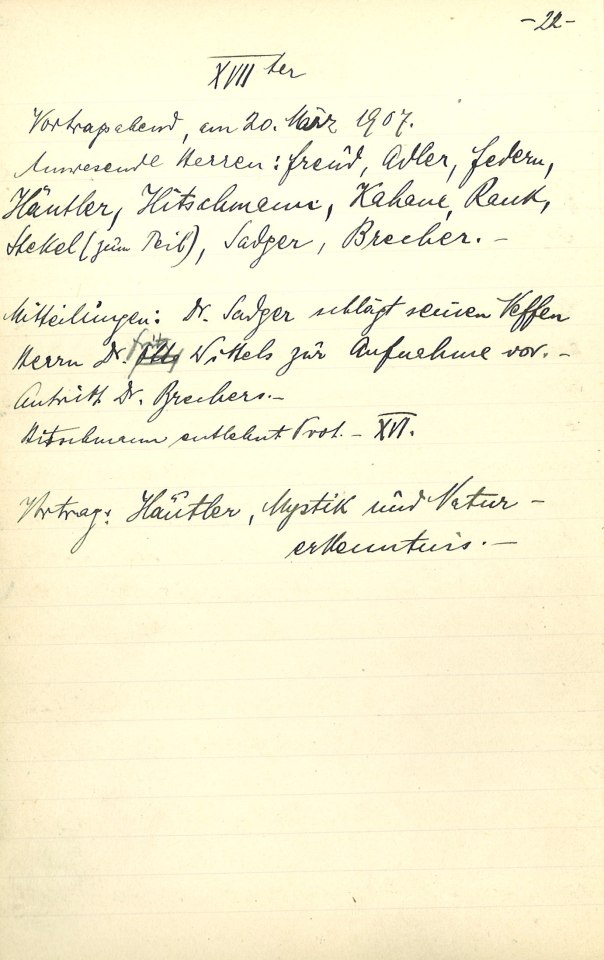 - 22 -
XVII ter
Vortragsabend, am 20. März 1907.
Anwesende Herren: Freud, Adler, Federn,
Häutler, Hitschmann, Kahane, Rank,
Stekel (zum Teil), Sadger, Brecher. -
Mitteilungen: Dr. Sadger schlägt seinen Neffen
Herrn Dr. Fritz Wittels zur Aufnahme vor. -
Antritt Dr. Brechers. -
Hitschmann entlehnt Prot. - XVI.
Vortrag: Häutler, Mystik und Natur-
erkenntnis. -